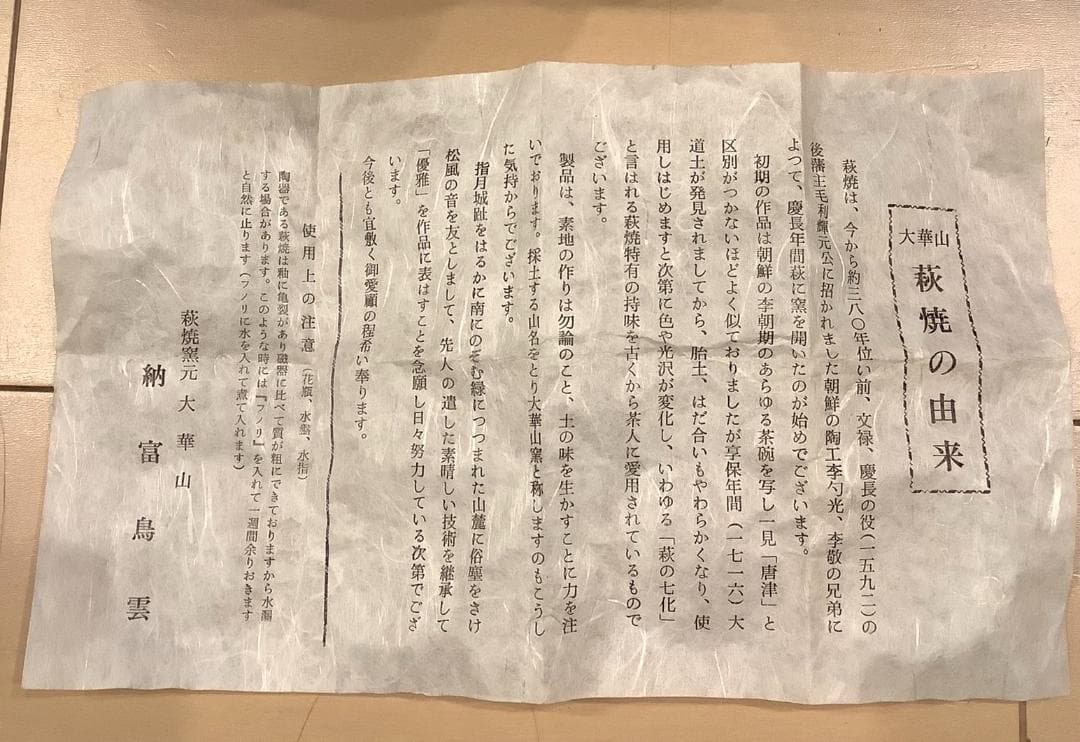 大華山
萩焼の由来
萩焼は、今から約三八〇年位い前、文禄、慶長の役(一五九二)の
後藩主毛利輝元公に招かれました朝鮮の陶工李勺光、李敬の兄弟に
よつて、慶長年間萩に窯を開いたのが始めでございます。
初期の作品は朝鮮の李朝期のあらゆる茶碗を写し一見「唐津」と
区別がつかないほどよく似ておりましたが享保年間(一七一六)大
道土が発見されましてから、胎土、はだ合いもやわらかくなり、使
用しはじめますと次第に色や光沢が変化し、いわゆる「萩の七化」
と言はれる萩焼特有の持味を古くから茶人に愛用されているもので
ございます。
製品は、素地の作りは勿論のこと、土の味を生かすことに力を注
いでおります。採土する山名をとり大華山窯と称しますのもこうし
た気持からでございます。
指月城趾をはるかに南にのぞむ緑につつまれた山麓に俗塵をさけ
松風の音を友としまして、先人の遺した素晴しい技術を継承して
「優雅」を作品に表はすことを念願し日々努力している次第でござ
います。
今後とも宜敷く御愛顧の程希い奉ります。
使用上の注意(花瓶、水盤、水指)
陶器である萩焼は釉に亀裂があり磁器に比べて質が粗にできておりますから水漏
する場合があります。このような時には『フノリ』を入れて一週間余りおきます
と自然に止ります(フノリに水を入れて煮て入れます)
萩焼窯元 大華山
納富鳥雲